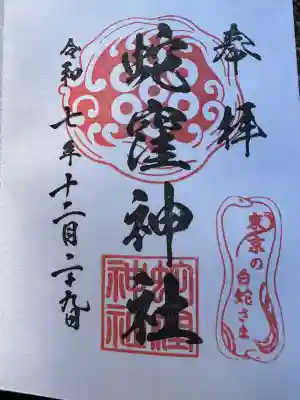 奉拝
蛇窪神社
令和七年十二月二十九日
東京の
白蛇さま
蛇窪
神社